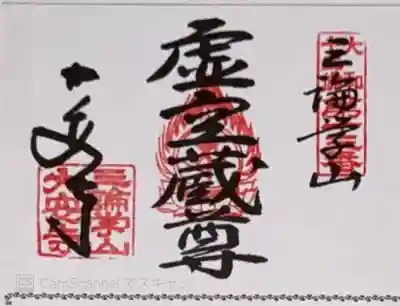 三論学山
虚空蔵尊
大安寺
三論学山
大安寺
CamScanner でスキャン